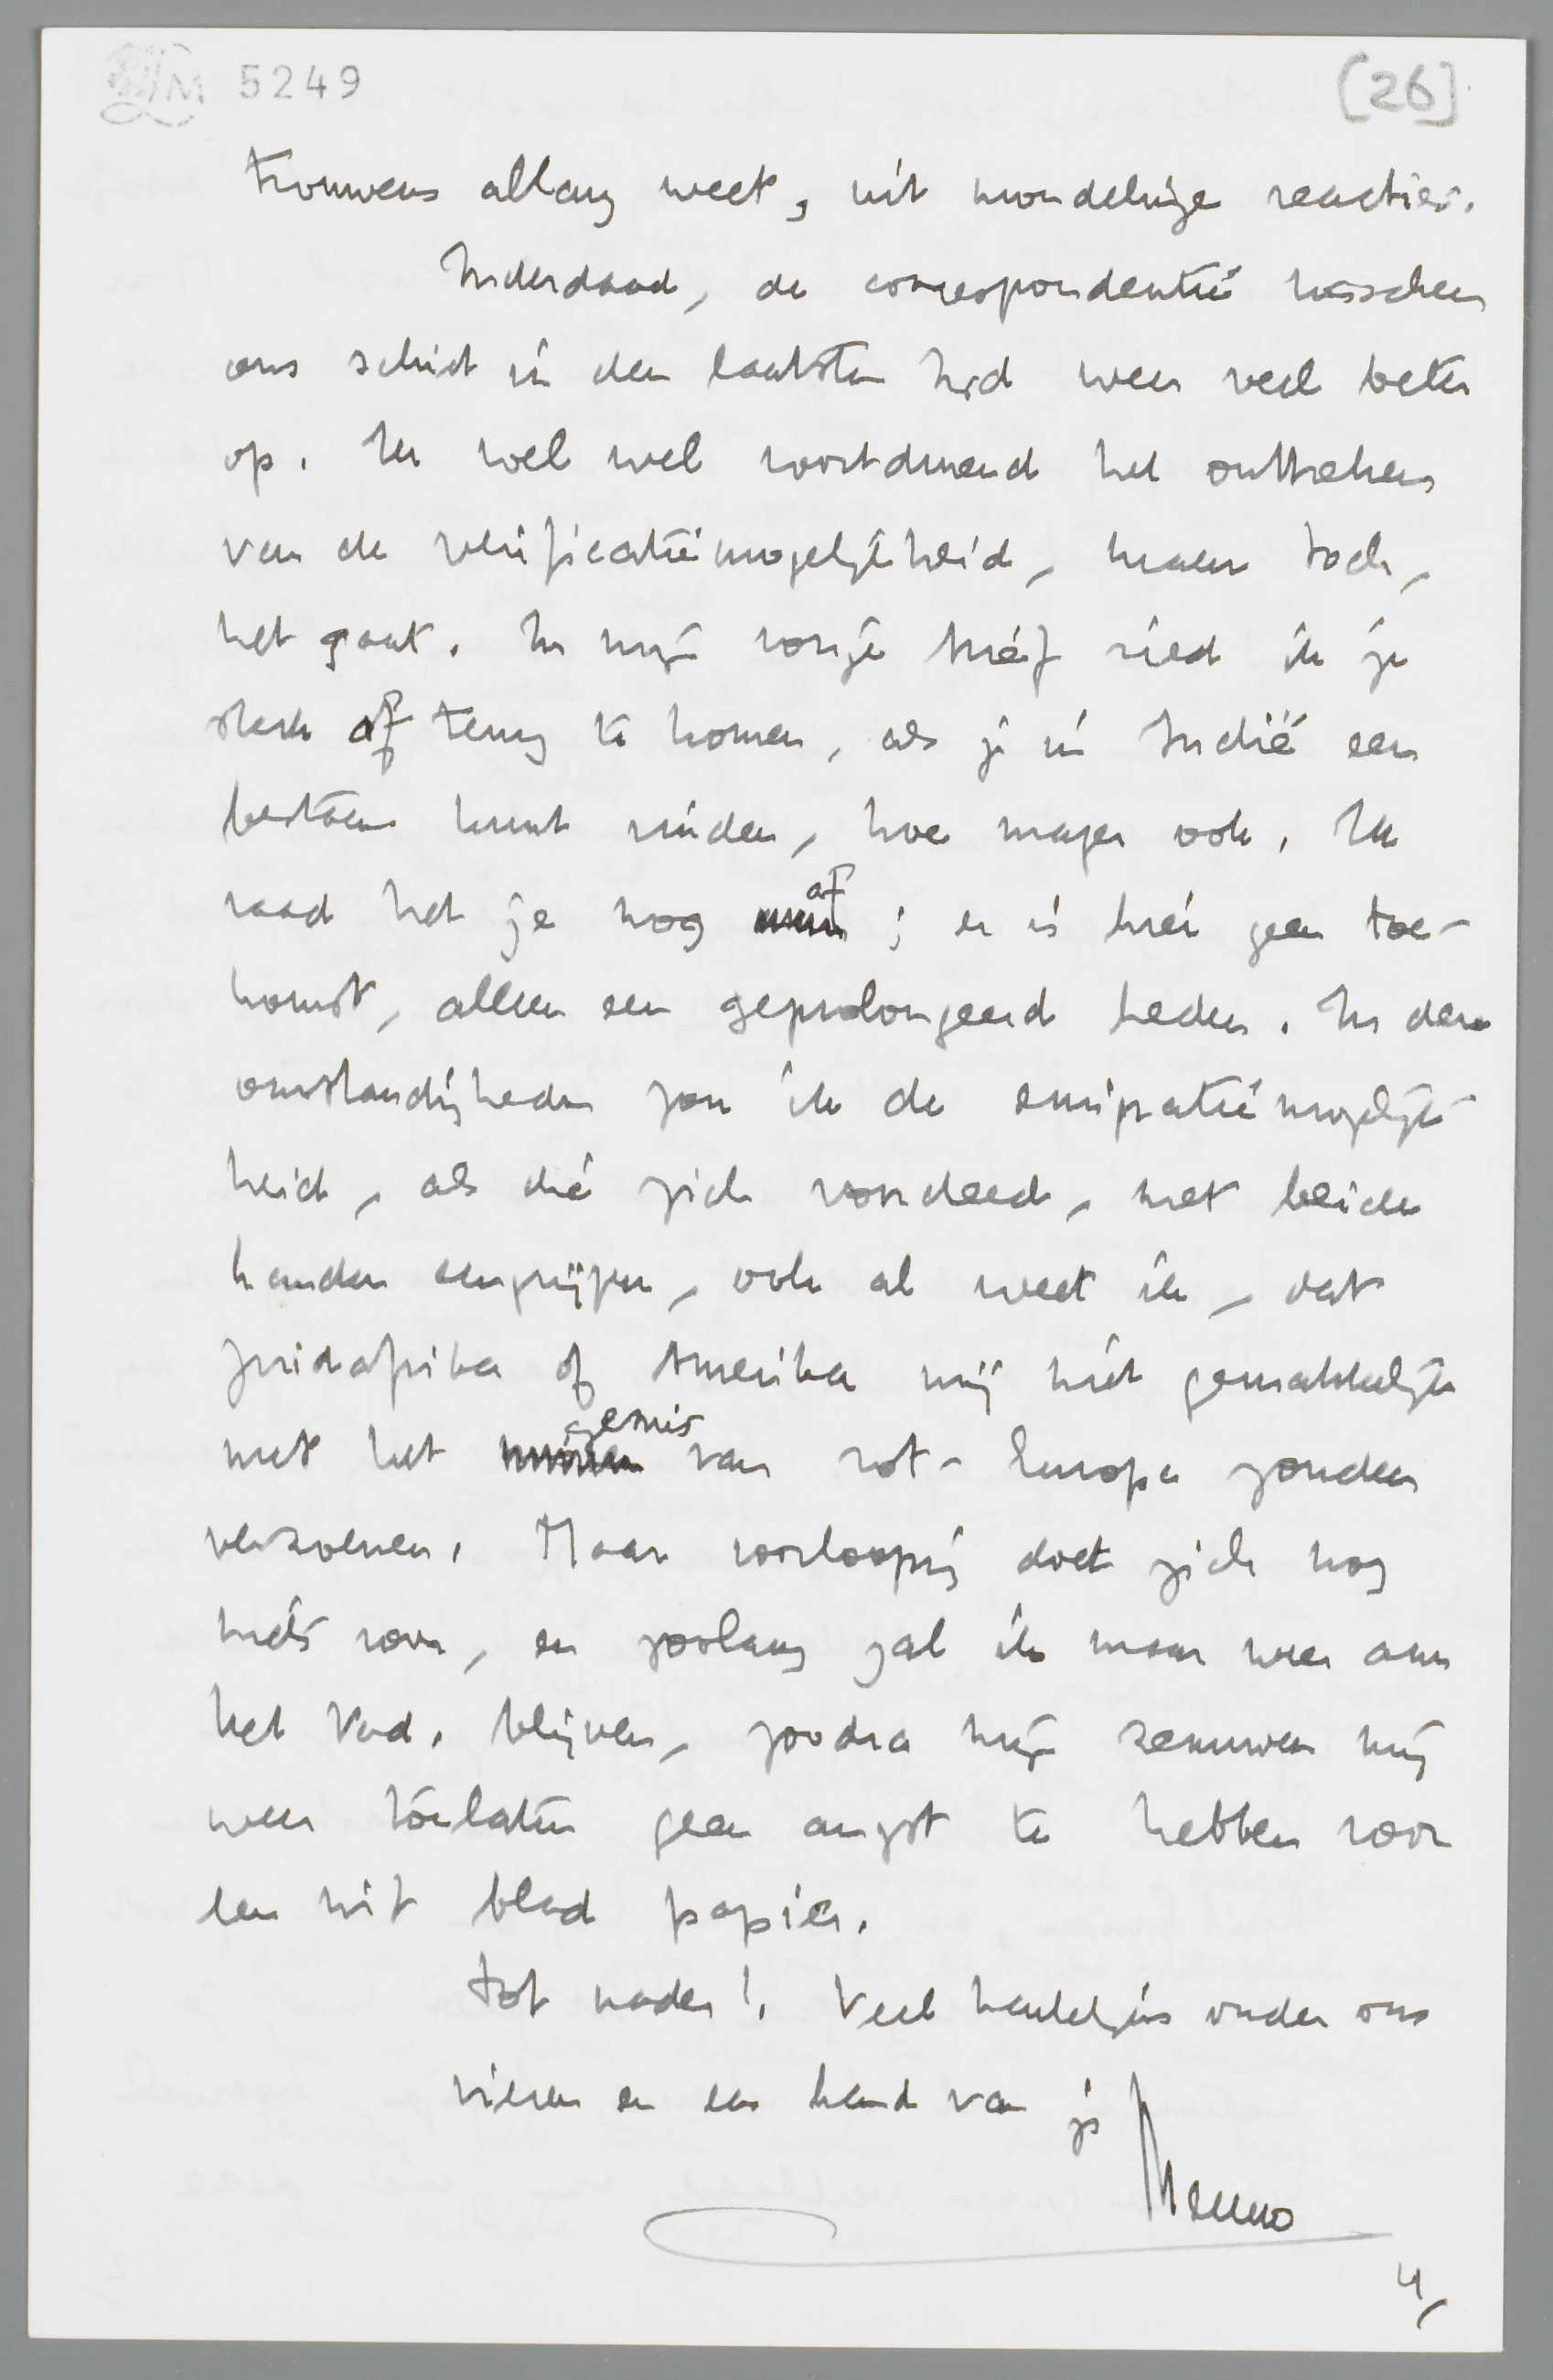 LM 5249
[26]
trouwens allang weet, uit mondelinge reacties.
Inderdaad, de correspondentie tusschen
ons schiet in den laatsten tijd weer veel beter
op. Ik voel wel voortdurend het ontbreken
van de verificatiemogelijkheid, maar toch,
het gaat. In mijn vorige brief ried ik je
sterk af terug te komen, als je in Indië een
bestaan kunt vinden, hoe mager ook. Ik
raad het je nog af; er is hier geen toe-
komst, alleen een geprolongeerd heden. In deze
omstandigheden zou ik de emigratiemogelijk-
heid, als die zich voordeed, met beide
handen aangrijpen, ook al weet ik, dat
Zuidafrika of Amerika mij niet gemakkelijk
met het gemis van rot-Europa zouden
verzoenen. Maar voorloopig doet zich nog
niets voor, en zoolang zal ik maar weer aan
het Vad. blijven, zoodra mijn zenuwen mij
weer toelaten geen angst te hebben voor
een wit blad papier.
Tot nader! Veel hartelijks onder ons
vieren en een hand van je
Menno
4/